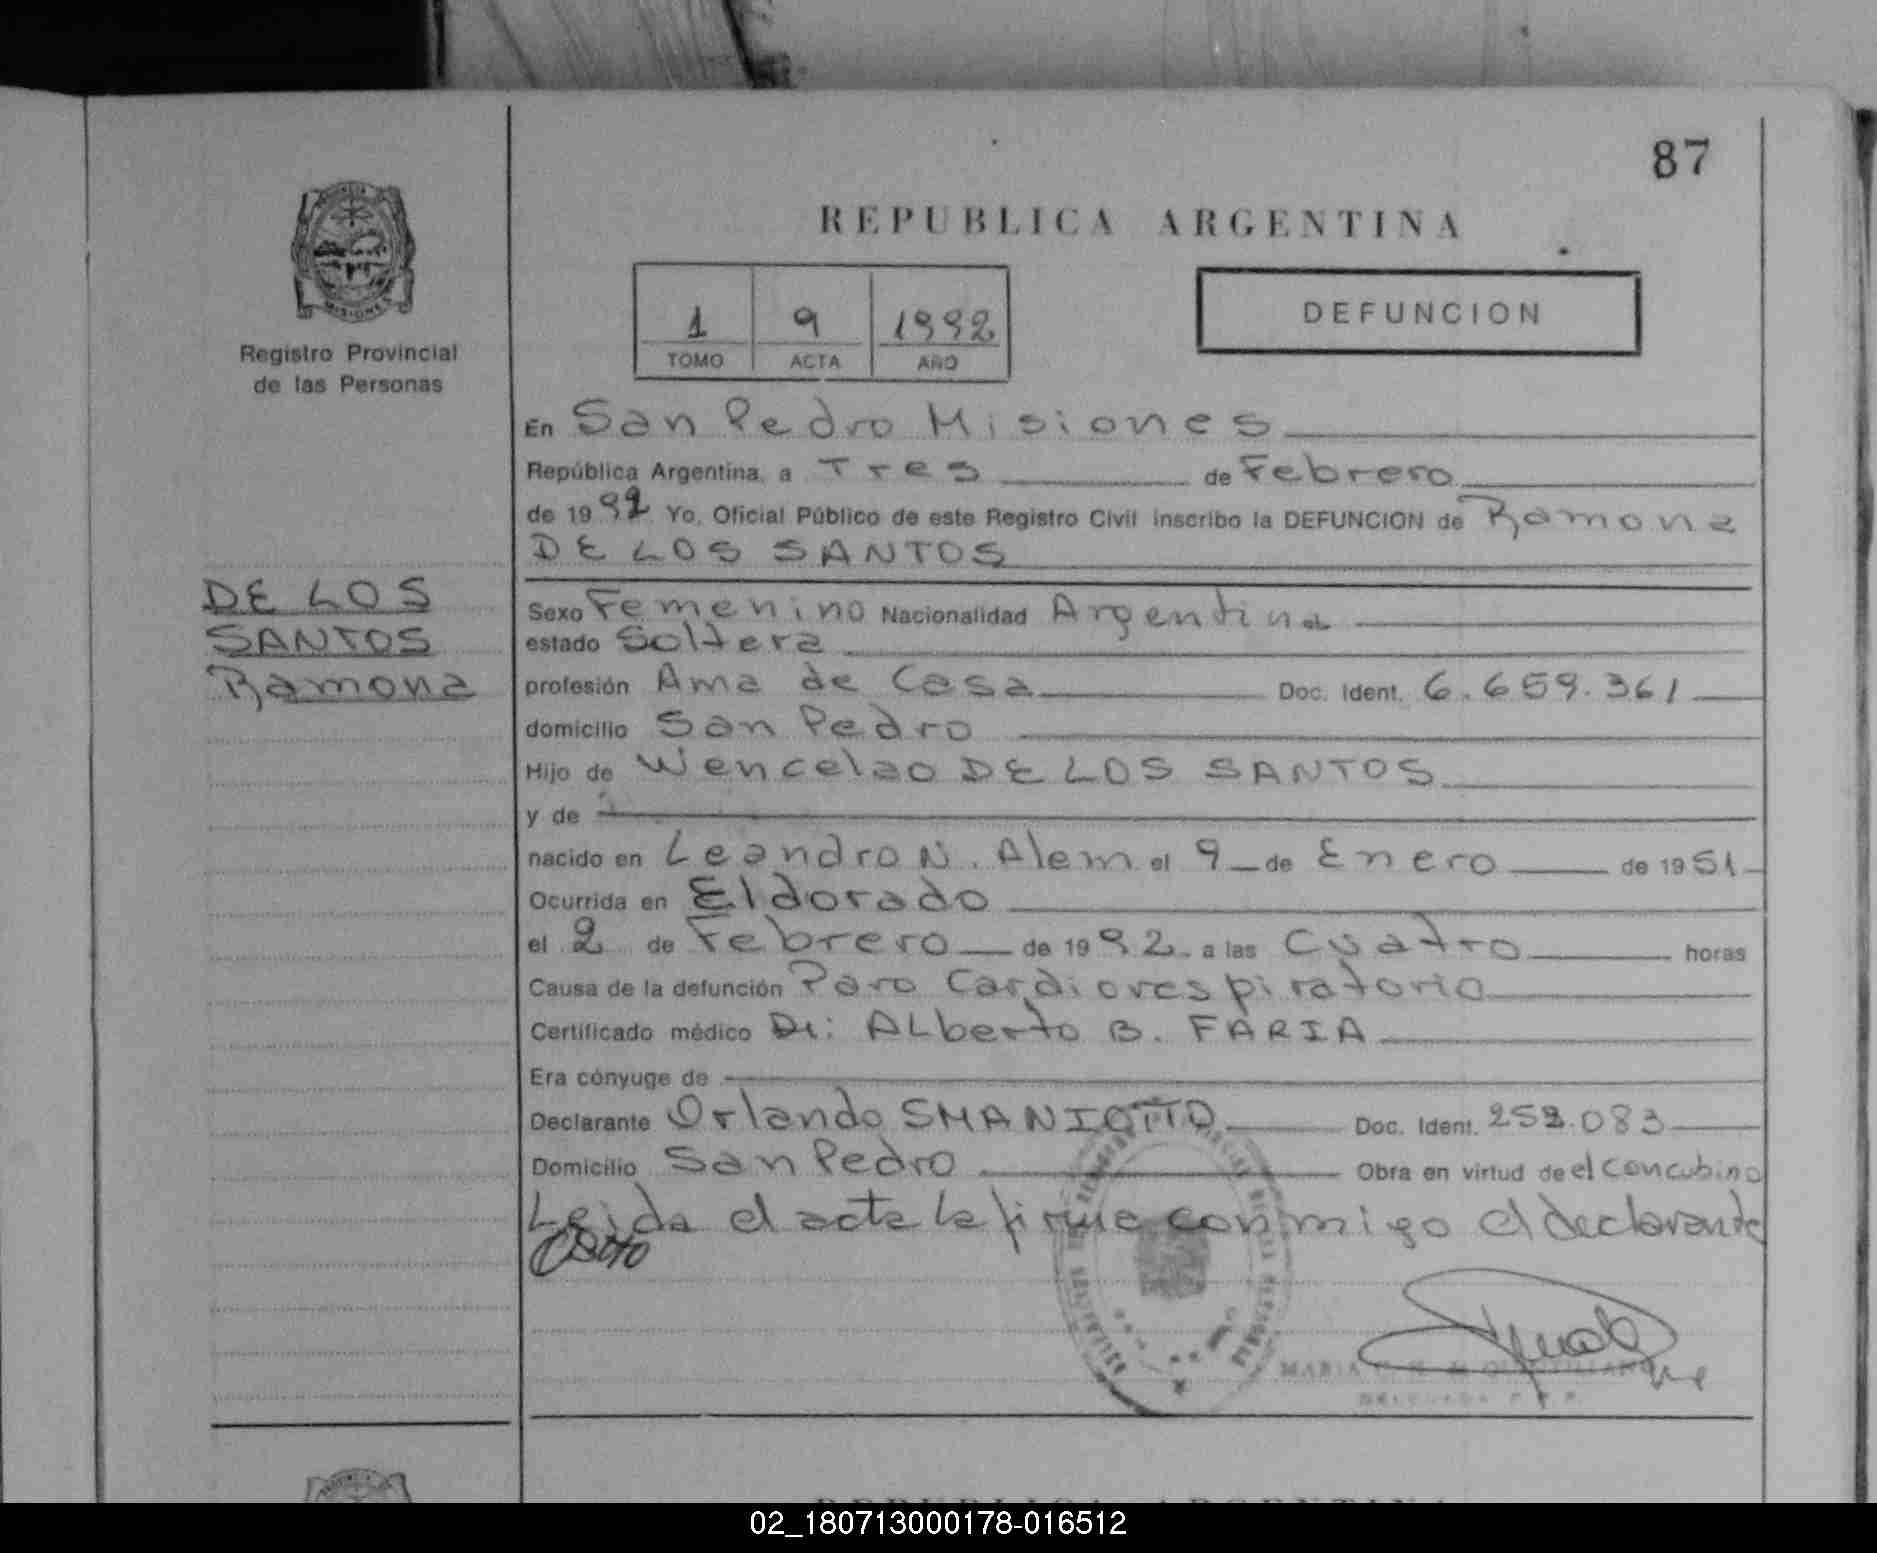 87
REPUBLICA ARGENTINA
1 9 1992
TOMO ACTA AÑO
DEFUNCION
MISIONES
Registro Provincial
de las Personas
DE LOS
SANTOS
Ramona
En San Pedro Misiones
República Argentina, a Tres de Febrero
de 1992 Yo, Oficial Público de este Registro Civil inscribo la DEFUNCION de Ramona
DE LOS SANTOS
Sexo Femenino Nacionalidad Argentina
estado Soltera
profesión Ama de Casa Doc. Ident. 6.659.361
domicilio San Pedro
Hijo de Wencelao DE LOS SANTOS
y de
nacido en Leandro N. Alem el 9 de Enero de 1951
Ocurrida en Eldorado
el 2 de Febrero de 1992 a las Cuatro horas
Causa de la defunción Paro Cardiorespiratorio
Certificado médico Dr: ALberto B. FARIA
Era cónyuge de
Declarante Orlando SMANIOTTO Doc. Ident. 252.083
Domicilio San Pedro Obra en virtud de el concubino
Leida el acta la firma conmigo el declarante
MARIA
REPUBLICA ARGENTINA
02_180713000178-016512